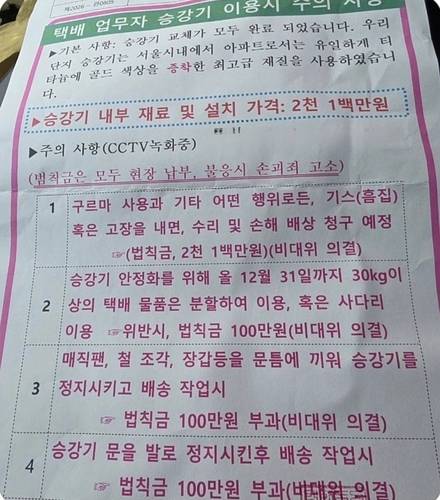 택배 업무자 승강기 이용시 주의 사항
▶기본 사항: 승강기 교체가 모두 완료 되었습니다. 우리
단지 승강기는 서울시내에서 아파트로서는 유일하게 티
타늄에 골드 색상을 증착한 최고급 재질을 사용하였습니
다.
▶승강기 내부 재료 및 설치 가격: 2천 1백만원
▶주의 사항(CCTV녹화중)
(범칙금은 모두 현장 납부, 불응시 손괴죄 고소)
1 구르마 사용과 기타 어떤 행위로든, 기스(흠집)
혹은 고장을 내면, 수리 및 손해 배상 청구 예정
☞(범칙금, 2천 1백만원)(비대위 의결)
승강기 안정화를 위해 올 12월 31일까지 30kg이
2 상의 택배 물품은 분할하여 이용, 혹은 사다리
이용 ☞위반시, 범칙금 100만원(비대위 의결)
매직팬, 철 조각, 장갑등을 문틈에 끼워 승강기를
3 정지시키고 배송 작업시
☞ 범칙금 100만원 부과(비대위 의결)
4 승강기 문을 발로 정지시킨후 배송 작업시
☞ 범칙금 100만원 부과(비대위 의결)